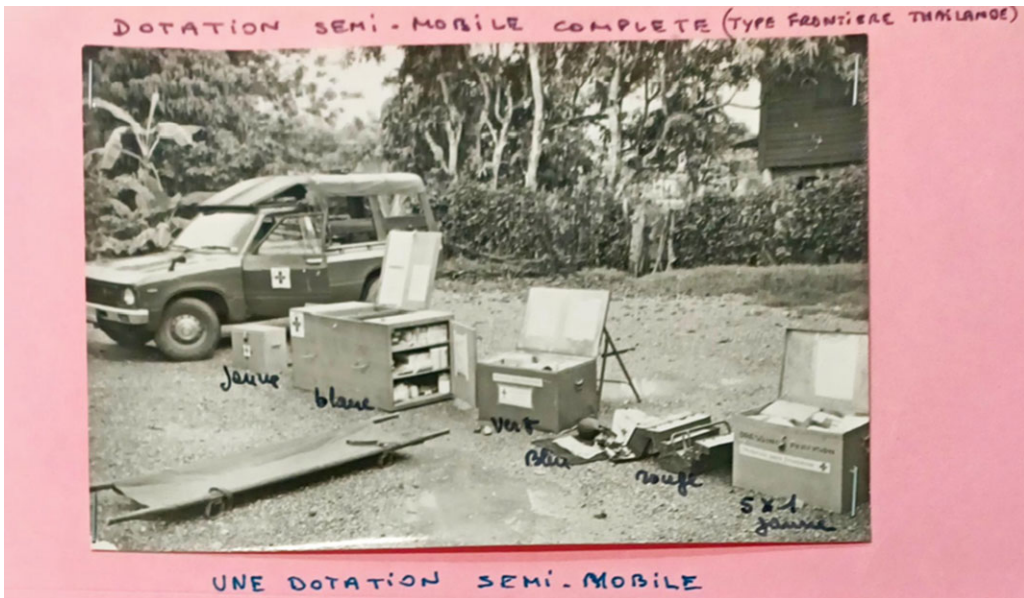 DOTATION SEMI-MOBILE COMPLETE (TYPE FRONTIERE THAILANDE)
Jaune
blanc
vert
Bleu
rouge
5 x 1
jaune
UNE DOTATION SEMI-MOBILE